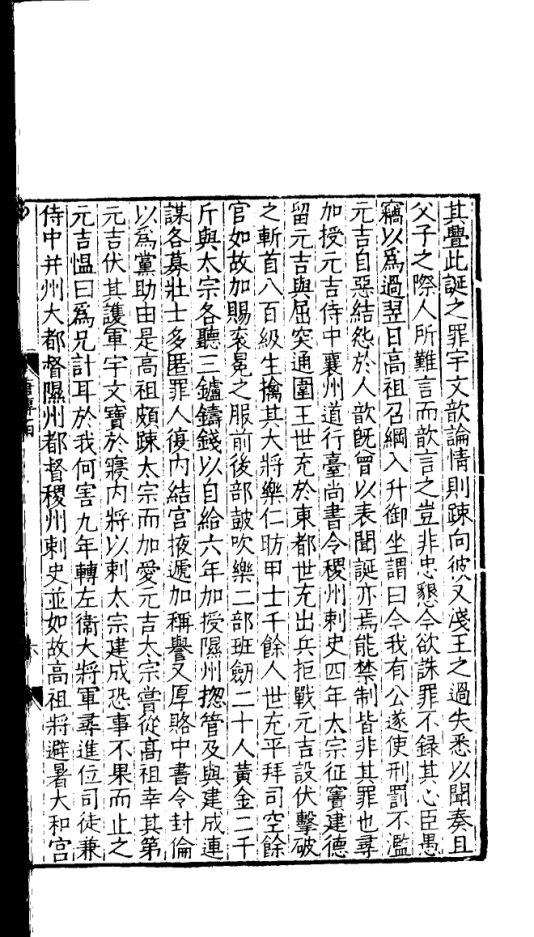 其舋此誕之罪宇文歆論情則踈向彼又淺王之過失悉以聞奏且
父子之際人所難言而歆言之豈非忠懇今欲誅罪不録其心臣愚
竊以爲過翌日高祖召綱入升御坐謂曰今我有公遂使刑罰不濫
元吉自惡結怨於人歆旣曾以表聞誕亦焉能禁制皆非其罪也尋
加授元吉侍中襄州道行臺尚書令稷州剌史四年太宗征竇建德
留元吉與屈突通圍王世充於東都世充出兵拒戰元吉設伏擊破
之斬首八百級生擒其大將樂仁昉甲士千餘人世充平拜司空餘
官如故加賜衮冕之服前後部鼓吹樂二部班劒二十人黃金二千
斤與太宗各聽三鑪鑄錢以自給六年加授隰州揔管及與建成連
謀各募壯士多匿罪人復内結宫掖遞加稱譽又厚賂中書令封倫
以爲黨助由是高祖頗踈太宗而加愛元吉太宗嘗從髙祖幸其第
元吉伏其護軍宇文寶於寢内將以刺太宗建成恐事不果而止之
元吉愠曰爲兄計耳於我何害九年轉左衛大將軍尋進位司徒兼
侍中并州大都督隰州都督稷州剌史並如故高祖將避暑大和宫